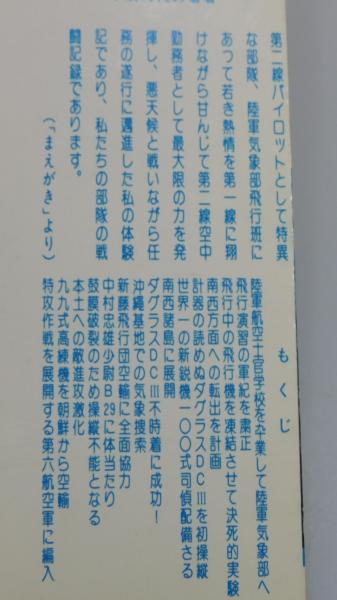 第二線パイロットとして特異
な部隊、陸軍気象部飛行班に
あって若き熱情を第一線に翔
けながら甘んじて第二線空中
勤務者として最大限の力を発
揮し、悪天候と戦いながら任
務の遂行に邁進した私の体験
記であり、私たちの部隊の戦
闘記録であります。
(「まえがき」より)
もくじ
陸軍航空士官学校を卒業して陸軍気象部へ
飛行演習の軍紀を粛正
飛行中の飛行機を凍結させて決死的実験
南西方面への転出を計画
計器の読めぬダグラスDCⅢを初操縦
世界一の新鋭機一〇〇式司偵配備さる
南西諸島に展開
ダグラスDCⅢ不時着に成功!
沖縄基地での気象捜索
新藤飛行団空輸に全面協力
中村忠雄少尉B29に体当たり
鼓膜破裂のため操縦不能となる
本土への敵進攻激化
九九式高練機を朝鮮から空輸
特攻作戦を展開する第六航空軍に編入